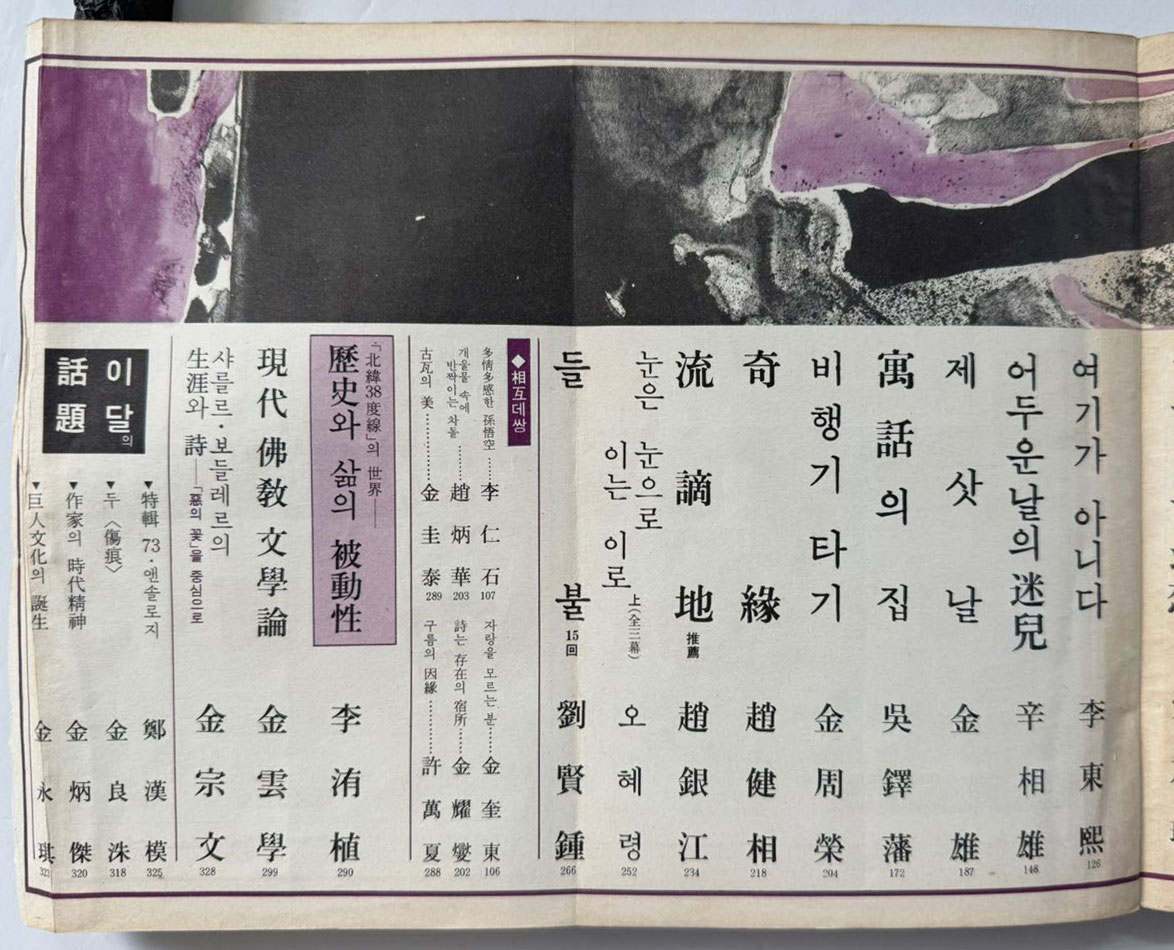 여기가 아니다 李東熙 126
어두운날의 迷兒 辛相雄 148
제삿날 金雄 187
寓話의 집 吳鐸藩 172
비행기 타기 金周榮 204
奇緣 趙健相 218
流謫地 推薦 趙銀江 234
눈은 눈으로
이는 이로 上(全三幕) 오혜령 252
들불 15回 劉賢鍾 266
◆相互데쌍
多情多感한 孫悟空 ……李仁石 107
자랑을 모르는 분……金奎東 106
개울물 속에
반짝이는 차돌 ……趙炳華 203
詩는 存在의 宿所……金耀燮 202
古瓦의 美……………金圭泰 289
구름의 因緣…………許萬夏 288
「北緯38度線」의 世界──
歷史와 삶의 被動性 李洧植 290
現代佛敎文學論 金雲學 299
샤를르·보들레르의
生涯와 詩──「惡의 꽃」을 중심으로 金宗文 328
이달의
話題
▼特輯 73·앤솔로지 鄭漢模 325
▼두 〈傷痕〉 金良洙 318
▼作家의 時代精神 金炳傑 320
▼巨人文化의 誕生 金永琪 323